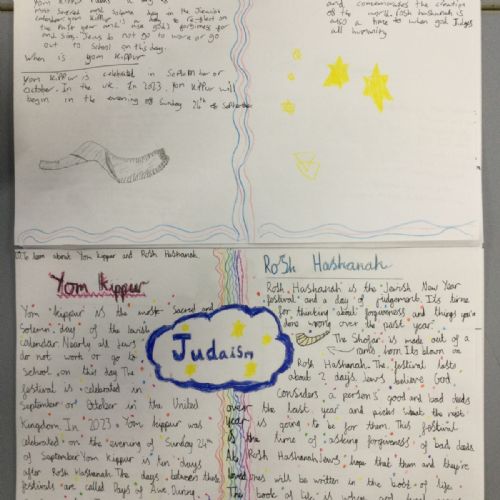 Yom Kippur means a day is
most sacred and solemn day in the Jewish
calendar. Yom Kippur is a day to reflect on
the past year and ask God's forgiveness for
any sins. Jews do not go to work or go
out to School on this day.
When is Yom Kippur
Yom Kippur is celebrated in September or
October. In the UK. In 2023, Yom Kippur will
begin in the evening of Sunday 24th of September
and commemorates the creation
of the world. Rosh Hashanah is
also a time to when god Judges
all humanity.
LO: To learn about Yom Kippur and Rosh Hashanah.
Yom Kippur
Yom Kippur is the most sacred and
Solemn day of the Jewish
calendar. Nearly all Jews
do not work or go to
School on this day. The
festival is celebrated in
September or October in the United
Kingdom. In 2023 Yom Kippur was
celebrated on the evening of Sunday 24th
of September. Yom Kippur is ten days
after Rosh Hashanah. The days between these
festivals are called Days of Awe. During
Judaism
Rosh Hashanah
Rosh Hashanah is the Jewish New Year
festival and a day of judgement. Its time
for thinking about forgiveness and things you've
done wrong over the past year.
The Shofar is made out of a
rams horn. Its blown on
Rosh Hashanah. The festival lasts
about 2 days. Jews believe God
Considers a person's good and bad deeds
over the last year and picks what the next
year is going to be for them. This festival
is the time of asking forgiveness of bad deeds.
At Rosh Hashanah Jews hope that them and they're
loved ones will be written in the book of life.
The book of life is where good